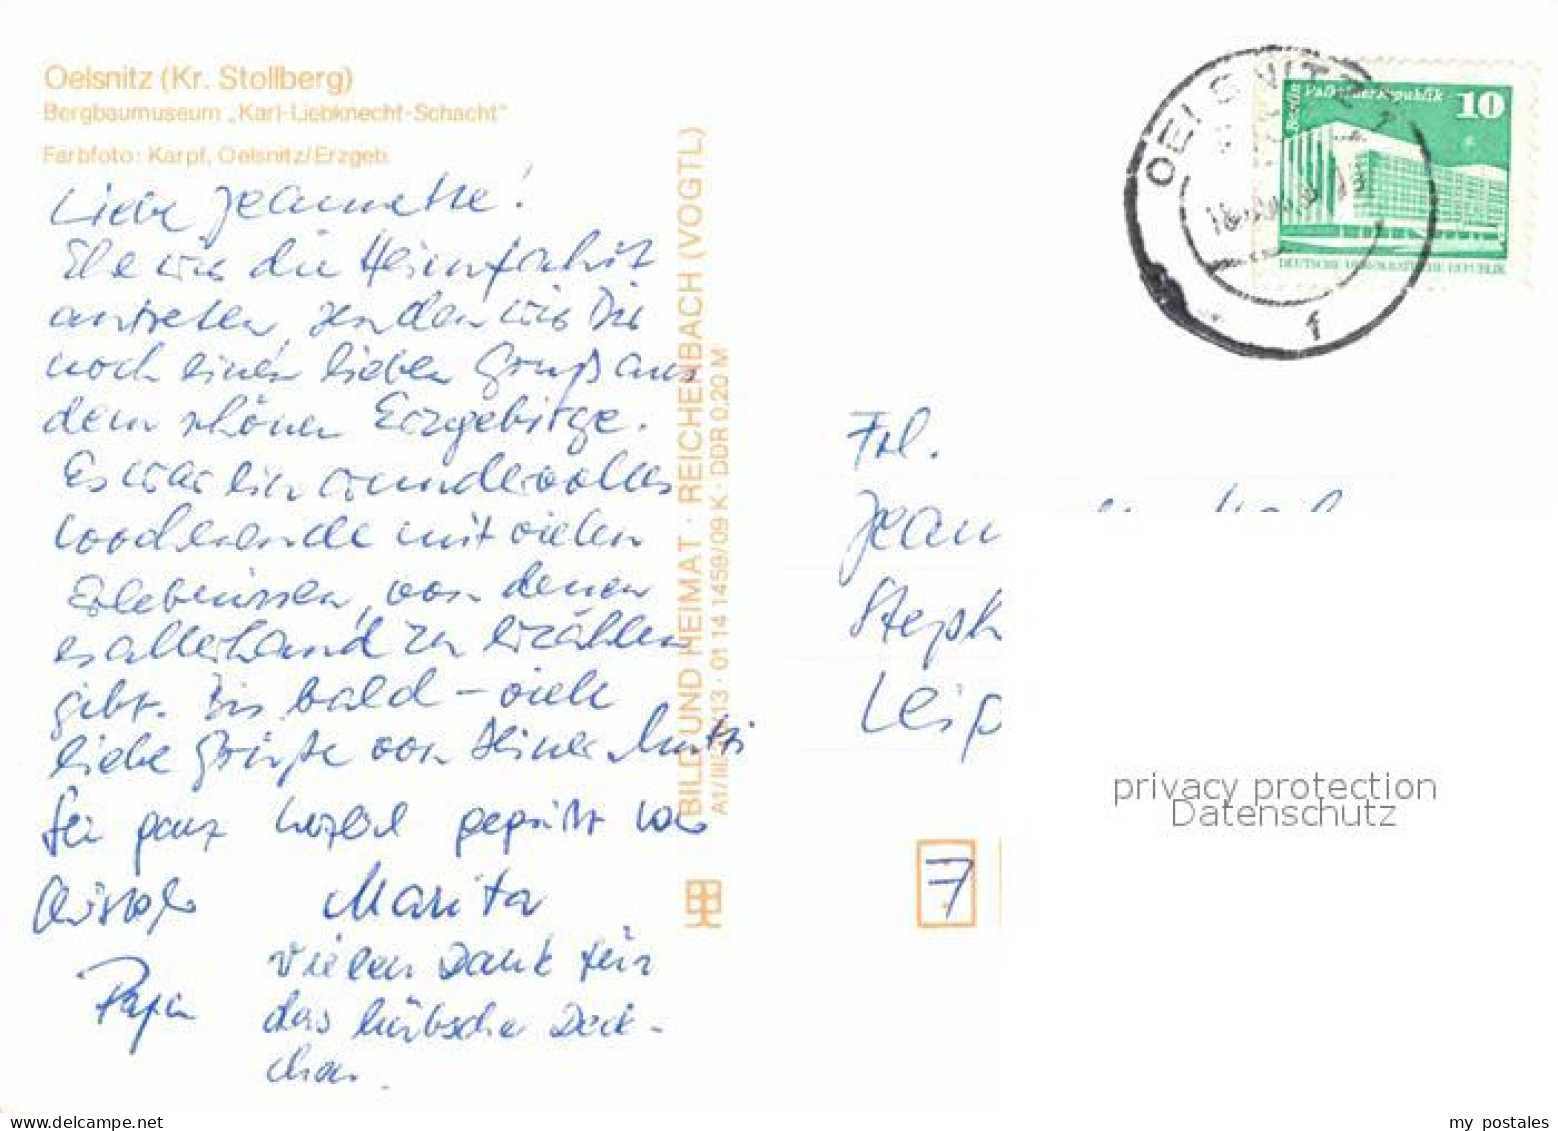 Oelsnitz (Kr. Stollberg)
Bergbaumuseum „Karl-Liebknecht-Schacht"
Farbfoto: Karpf, Oelsnitz/Erzgeb.
Liebe Jeannette!
Ehe wir die Heimfahrt
antreten, senden wir Dir
noch einen lieben Gruß aus
dem schönen Erzgebirge.
Es war ein wundervolles
Wochenende mit vielen
Erlebnissen, von denen
es allerhand zu erzählen
gibt. Bis bald – viele
liebe Grüße von Deiner Mutti
Sei ganz herzl. gegrüßt von
Christofer Marita
Papa
Vielen Dank für
das hübsche Deck-
chen.
BILD UND HEIMAT · REICHENBACH (VOGTL)
13 · 01 14 1459/09 K · DDR 0,20 M
OELSNITZ
1
Berlin
Palast der Republik
10
DEUTSCHE DEMOKRATISCHE REPUBLIK
Frl.
Jean
Steph
Leip
7
privacy protection
Datenschutz
my postales